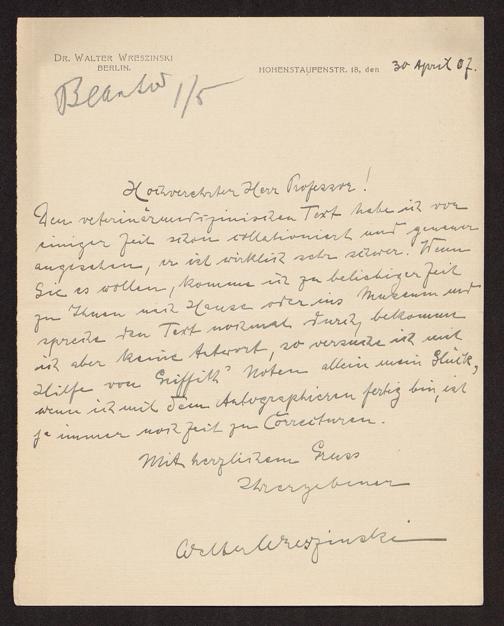 DR. WALTER WRESZINSKI
BERLIN.
HOHENSTAUFENSTR. 18, den 30 April 07.
Beantw 1/5
Hochverehrter Herr Professor!
Den veterinärmedizinischen Text habe ich vor
einiger Zeit schon collationiert und genauer
angesehen, er ist wirklich sehr schwer. Wenn
Sie es wollen, komme ich zu beliebiger Zeit
zu Ihnen nach Hause oder ins Museum und
spreche den Text nochmal durch, bekomme
ich aber keine Antwort, so versuche ich mit
Hilfe von Griffith' Noten allein mein Glück,
wenn ich mit dem Autographieren fertig bin, ist
ja immer noch Zeit zu Correcturen.
Mit herzlichem Gruss
Ihr ergebener
Walter Wreszinski